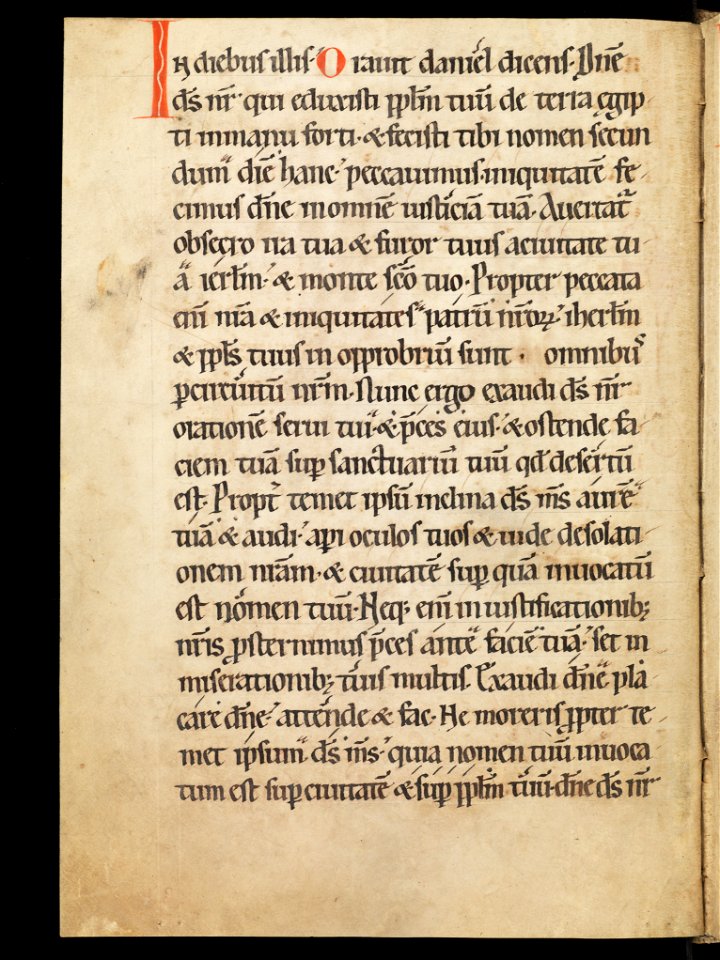 In diebus illis. Orauit daniel dicens. Dñe
ds̄ nr̄ qui eduxisti ppl̄m tuū de terra ęgip
ti inmanu forti. & fecisti tibi nomen secun
dum diē hanc. peccauimus. iniquitatē fe-
cimus dñe inomnē iusticiā tuā. Auertat᷑
obsecro ira tua & furor tuus aciuitate tu-
a ierl̄m. & monte scō tuo. Propter peccata
enī nr̄a & iniquitates patrū nr̄oꝝ. iherl̄m
& ppl̄s tuus in opprobriū sunt . omnibus
ꝑcircuitū nr̄m. Nunc ergo exaudi ds̄ nr̄
orationē serui tui. & p̄ces eius. & ostende fa-
ciem tuā suꝑ sanctuariū tuū qd̄ desertū
est. Propt̄ temet ipsū inclina ds̄ ms̄ aurē
tuā & audi. aꝑi oculos tuos & uide desolati
onem nr̄am. & ciuitatē suꝑ quā inuocatū
est nomen tuū. Neq; enī in iustificationib;
nr̄is ꝓsternimus p̄ces ante faciē tuā. set in
miserationib; tuis multis. Exaudi dñe pla
care dñe. attende & fac. Ne moreris ꝓpter te-
met ipsum ds̄ ms̄. quia nomen tuū inuoca
tum est suꝑ ciuitatē & suꝑ ppl̄m tuū. dñe ds̄ nr̄